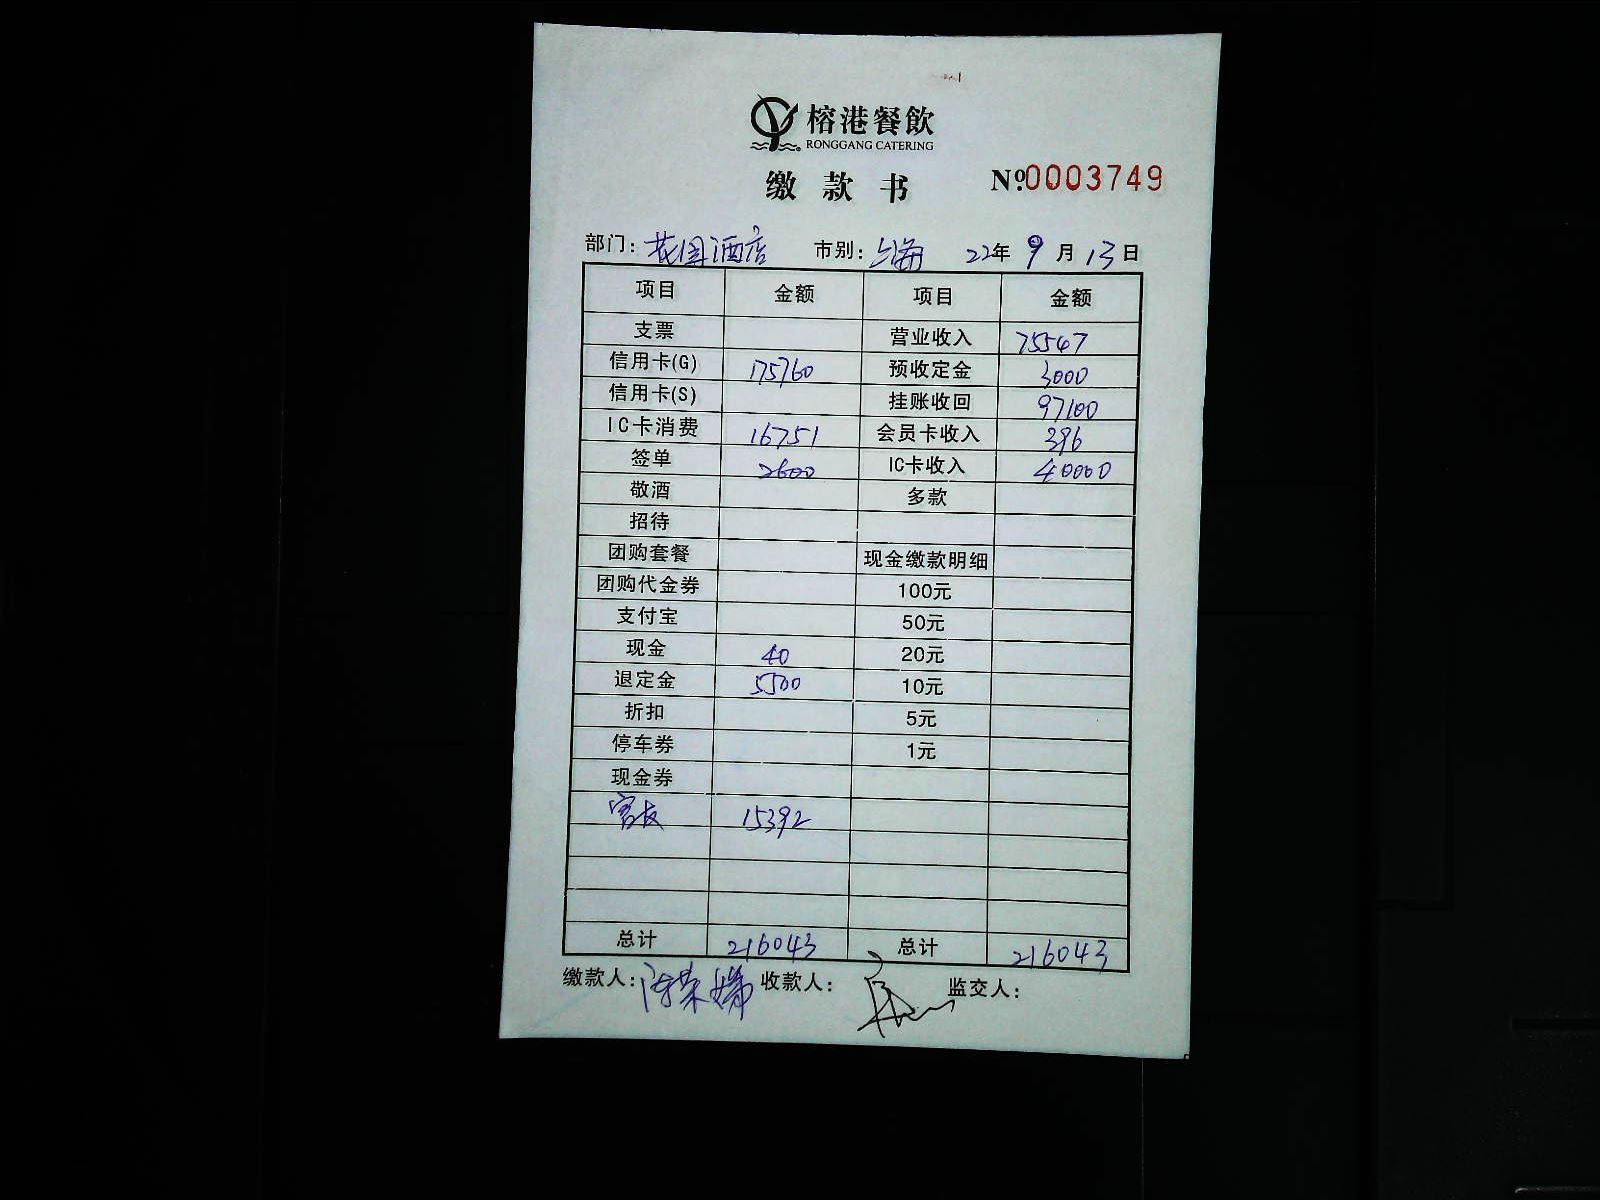 榕港餐飲
RONGGANG CATERING
缴款书 Nº:0003749
部门: 花园酒店 市别: 上海 22年 9月 13日
项目 金额 项目 金额
支票 营业收入 75547
信用卡(G) 175760 预收定金 3000
信用卡(S) 挂账收回 97100
IC卡消费 16751 会员卡收入 396
签单 2600 IC卡收入 40000
敬酒 多款
招待
团购套餐 现金缴款明细
团购代金券 100元
支付宝 50元
现金 40 20元
退定金 5500 10元
折扣 5元
停车券 1元
现金券
15392
总计 216043 总计 216043
缴款人: 收款人: 监交人: